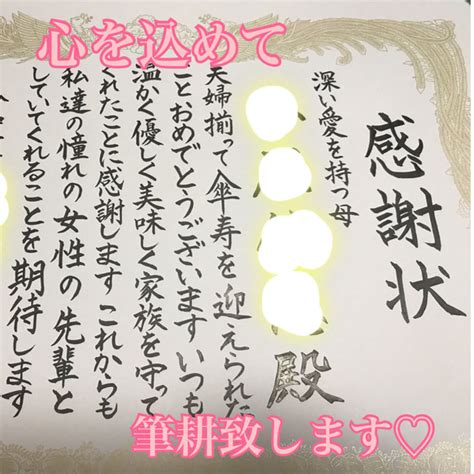 心を込めて
感謝状
深い愛を持つ母
殿
夫婦揃って傘寿を迎えられた
ことおめでとうございます いつも
温かく優しく美味しく家族を守って
くれたことに感謝します これからも
私達の憧れの女性の先輩と
していてくれることを期待します
筆耕致します♡